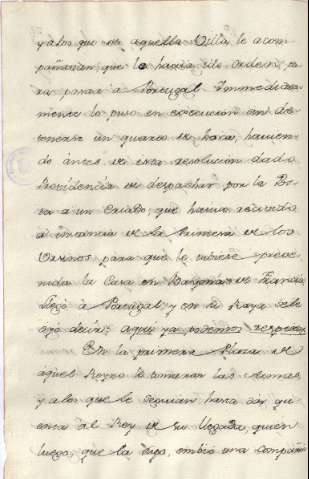 y a los que en aquella Villa le acom
pañavan, que le havia ido orden pa
ra pasar a Portugal. Immediata
mente lo puso en execucion sin de
tenerse un quarto de hora, havien
do antes de esta resolucion dado
Providencia de despachar por la Pos
ta a un Criado, que havia
a instancia de la Primera de los
Ursinos para que le tubiese preve
nida la Casa en Francia
llegó à Portugal, y en la Raya se le
oyó decir: aqui ya podemos respirar
En la primera Plaza de
aquel Reyno le tomaron las Armas,
y a los que le seguian hasta dar qu
enta al Rey de su llegada, quien
luego, que la supo, embió una compañia